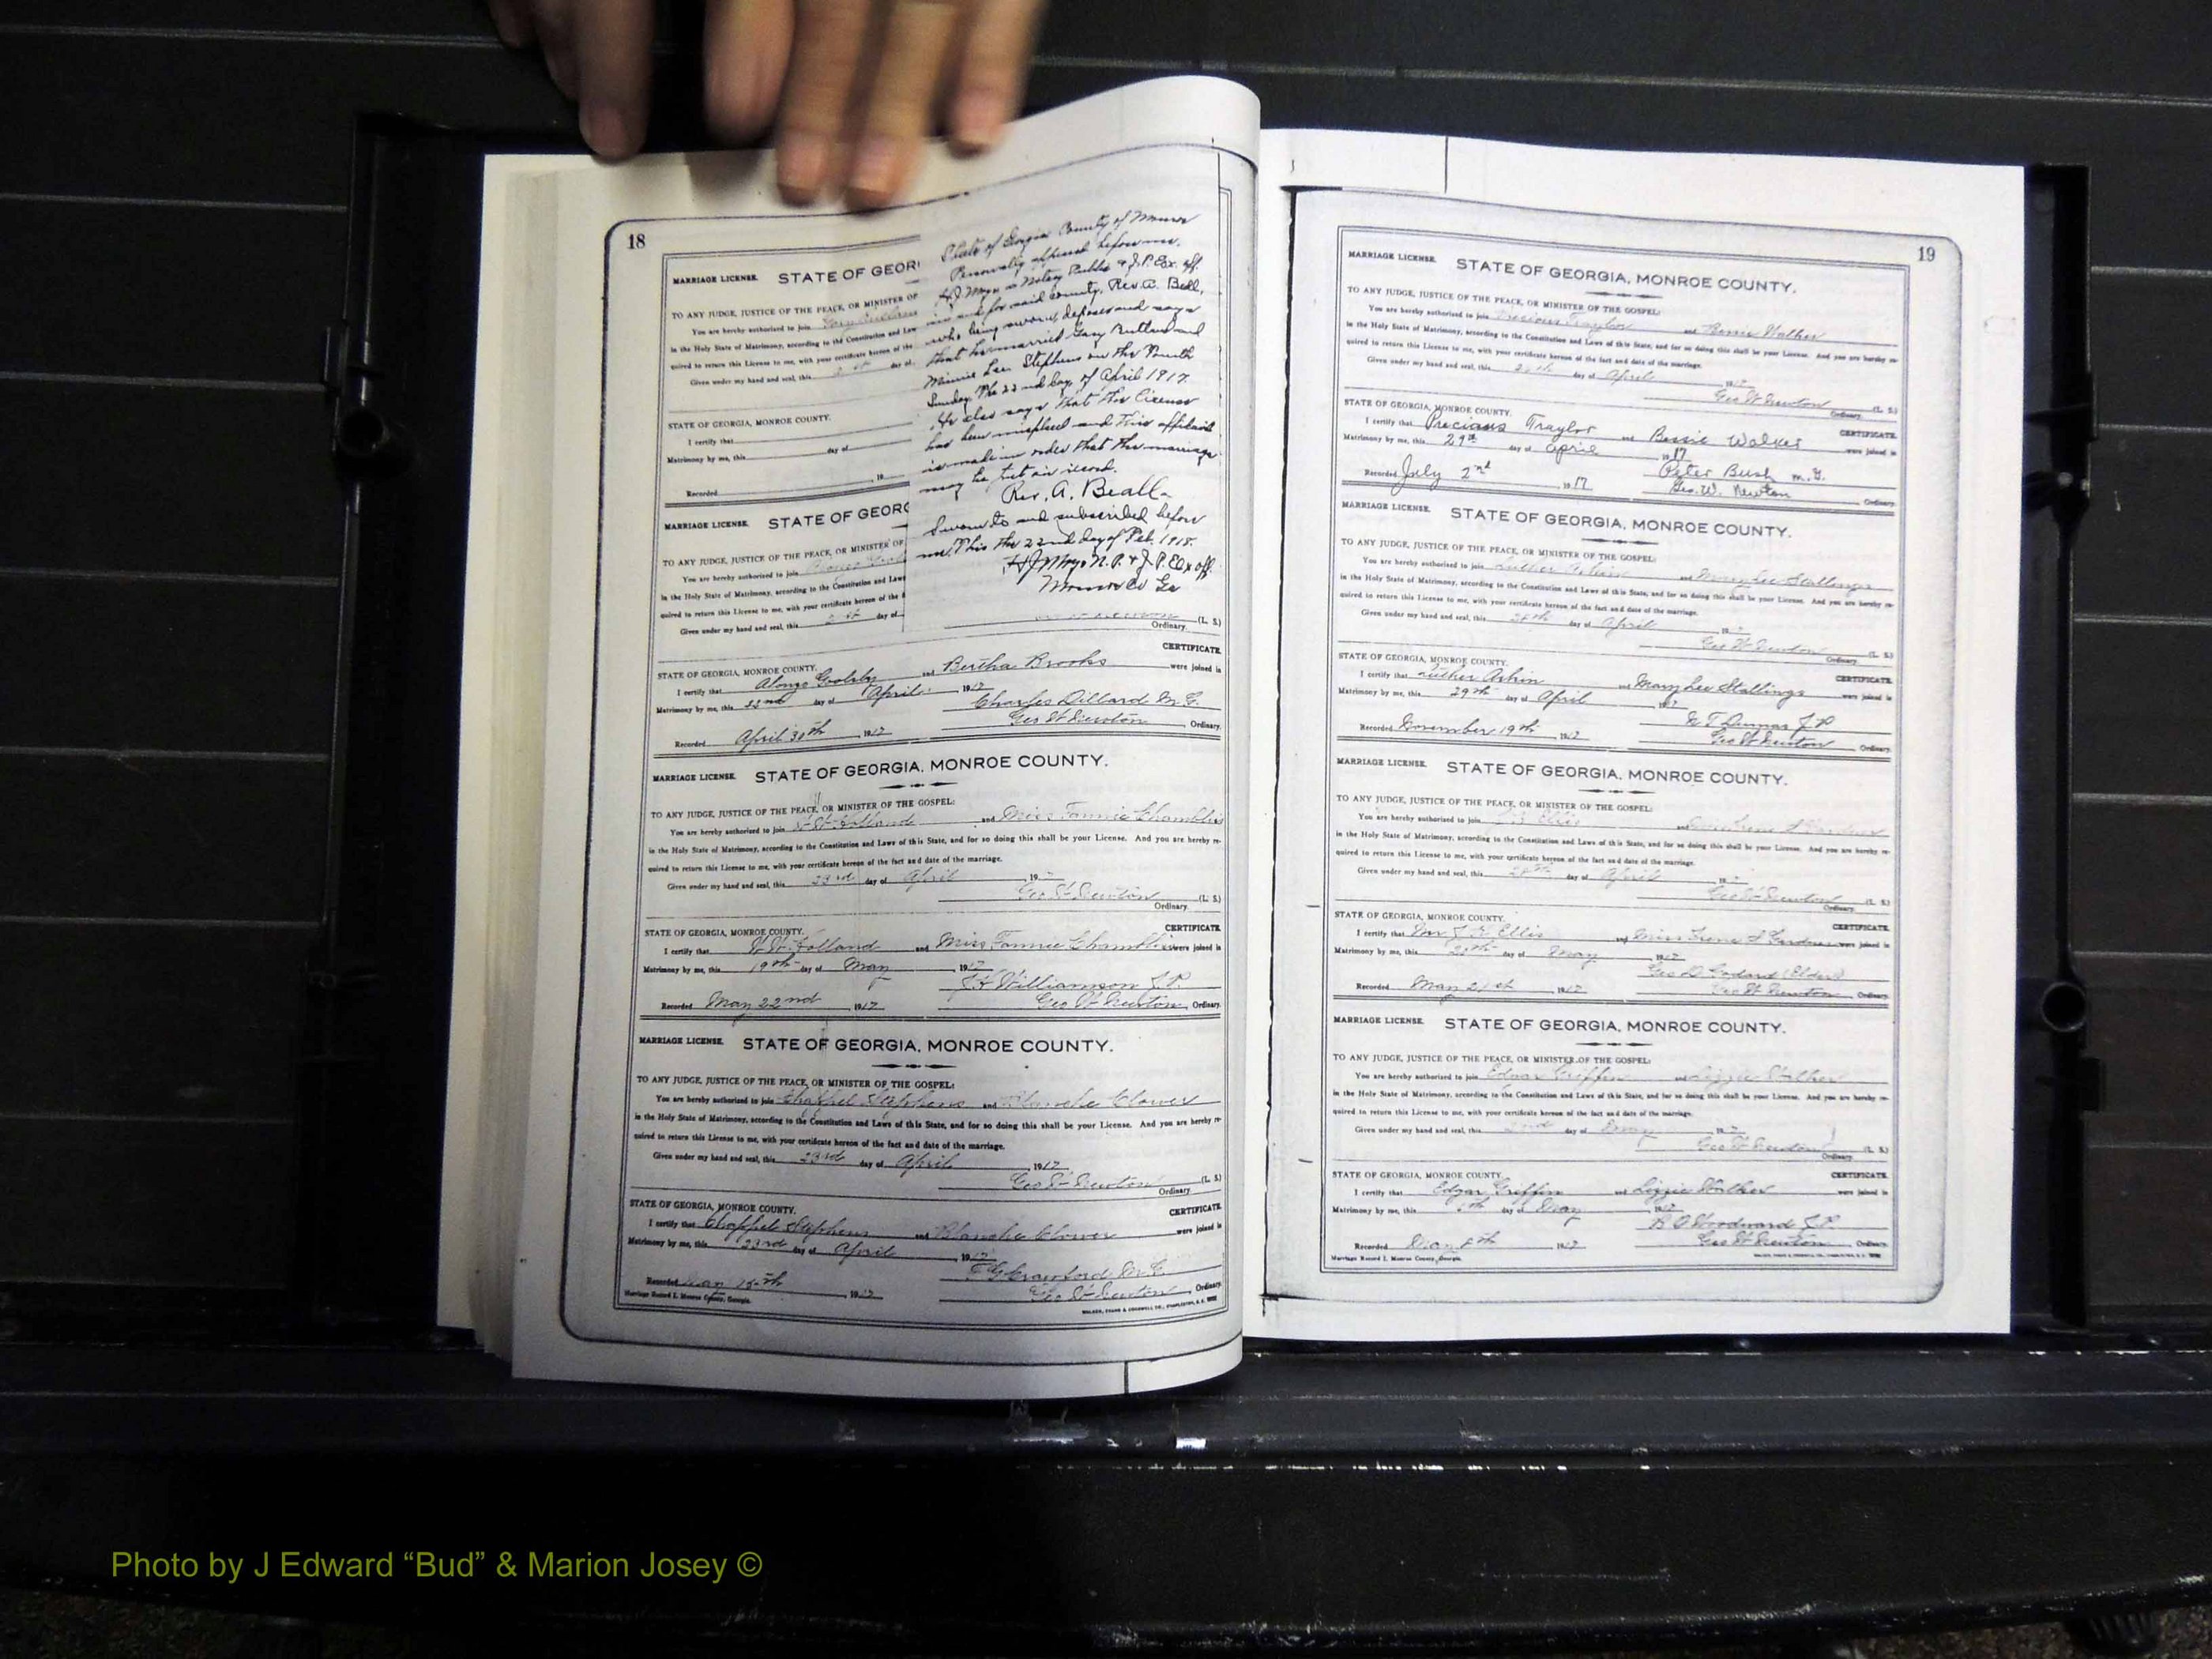 18
MARRIAGE LICENSE. STATE OF GEOR
TO ANY JUDGE, JUSTICE OF THE PEACE, OR MINISTER OF
You are hereby authorized to join
in the Holy State of Matrimony, according to the Constitution and Law
quired to return this License to me, with your certificate hereon of the
Given under my hand and seal, this day of
STATE OF GEORGIA, MONROE COUNTY.
I certify that
Matrimony by me, this day of
Recorded , 19
State of Georgia County of Monroe
Personally appeared before me.
H J Mays a Notary Public & J. P. Ex. off.
in and for said County, Rev. A. Beall,
who being sworn, deposes and says
that he married Gary Rutland and
Minnie Lee Stephens on the Fourth
Sunday The 22nd day of April 1917.
He also says that the License
has been misplaced and this affidavit
is made in order that the marriage
may be put on record.
Rev. A. Beall
Sworn to and subscribed before
me. This the 22nd day of Feb. 1918.
H J Mays N. P. & J. P. Ex off.
Monroe Co Ga
MARRIAGE LICENSE. STATE OF GEORG
TO ANY JUDGE, JUSTICE OF THE PEACE, OR MINISTER OF
You are hereby authorized to join
in the Holy State of Matrimony, according to the Constitution and Laws
quired to return this License to me, with your certificate hereon of the
Given under my hand and seal, this day of
(L. S.)
Ordinary.
STATE OF GEORGIA, MONROE COUNTY. CERTIFICATE
I certify that Alonzo Goolsby and Bertha Brooks were joined in
Matrimony by me, this 22nd day of April 1917
Charles Dillard M. G.
Recorded April 30th , 1917 Geo W Newton , Ordinary.
MARRIAGE LICENSE. STATE OF GEORGIA, MONROE COUNTY.
TO ANY JUDGE, JUSTICE OF THE PEACE, OR MINISTER OF THE GOSPEL:
You are hereby authorized to join Holland and Miss Fannie Chambliss
in the Holy State of Matrimony, according to the Constitution and Laws of this State, and for so doing this shall be your License. And you are hereby re-
quired to return this License to me, with your certificate hereon of the fact and date of the marriage.
Given under my hand and seal, this 23rd day of April , 19
Geo W Newton (L. S.)
Ordinary.
STATE OF GEORGIA, MONROE COUNTY. CERTIFICATE
I certify that Holland and Miss Fannie Chambliss were joined in
Matrimony by me, this 19th day of May , 1917
Williamson J. P.
Recorded May 22nd , 1917 Geo W Newton , Ordinary.
MARRIAGE LICENSE. STATE OF GEORGIA, MONROE COUNTY.
TO ANY JUDGE, JUSTICE OF THE PEACE, OR MINISTER OF THE GOSPEL:
You are hereby authorized to join Chappel Stephens and Blanche Clower
in the Holy State of Matrimony, according to the Constitution and Laws of this State, and for so doing this shall be your License. And you are hereby re-
quired to return this License to me, with your certificate hereon of the fact and date of the marriage.
Given under my hand and seal, this 23rd day of April , 1917
Geo W Newton (L. S.)
Ordinary.
STATE OF GEORGIA, MONROE COUNTY. CERTIFICATE
I certify that Chappel Stephens and Blanche Clower were joined in
Matrimony by me, this 23rd day of April , 1917
Crawford M. G.
Recorded May 15th , 1917 Geo W Newton , Ordinary.
Marriage Record I. Monroe County, Georgia.
19
MARRIAGE LICENSE. STATE OF GEORGIA, MONROE COUNTY.
TO ANY JUDGE, JUSTICE OF THE PEACE, OR MINISTER OF THE GOSPEL:
You are hereby authorized to join Precious Traylor and Bessie Walker
in the Holy State of Matrimony, according to the Constitution and Laws of this State, and for so doing this shall be your License. And you are hereby re-
quired to return this License to me, with your certificate hereon of the fact and date of the marriage.
Given under my hand and seal, this day of April 1917
Geo W Newton (L. S.)
Ordinary.
STATE OF GEORGIA, MONROE COUNTY. CERTIFICATE
I certify that Precious Traylor and Bessie Walker were joined in
Matrimony by me, this 29th day of April 1917
Peter Bush M. G.
Recorded July 2nd , 1917 Geo. W. Newton Ordinary.
MARRIAGE LICENSE. STATE OF GEORGIA, MONROE COUNTY.
TO ANY JUDGE, JUSTICE OF THE PEACE, OR MINISTER OF THE GOSPEL:
You are hereby authorized to join Luther and Mary Lee Stallings
in the Holy State of Matrimony, according to the Constitution and Laws of this State, and for so doing this shall be your License. And you are hereby re-
quired to return this License to me, with your certificate hereon of the fact and date of the marriage.
Given under my hand and seal, this 28th day of April , 19
Geo W Newton (L. S.)
Ordinary.
STATE OF GEORGIA, MONROE COUNTY. CERTIFICATE
I certify that Luther and Mary Lee Stallings were joined in
Matrimony by me, this 29th day of April 1917
Dumas J. P.
Recorded November 19th , 1917 Geo W Newton Ordinary.
MARRIAGE LICENSE. STATE OF GEORGIA, MONROE COUNTY.
TO ANY JUDGE, JUSTICE OF THE PEACE, OR MINISTER OF THE GOSPEL:
You are hereby authorized to join Ellis and
in the Holy State of Matrimony, according to the Constitution and Laws of this State, and for so doing this shall be your License. And you are hereby re-
quired to return this License to me, with your certificate hereon of the fact and date of the marriage.
Given under my hand and seal, this 28th day of April , 19
Geo W Newton (L. S.)
Ordinary.
STATE OF GEORGIA, MONROE COUNTY. CERTIFICATE
I certify that Mr Ellis and Miss Irene were joined in
Matrimony by me, this 20th day of May , 1917
Geo D Godard (Elder)
Recorded May 21st , 1917 Geo W Newton Ordinary.
MARRIAGE LICENSE. STATE OF GEORGIA, MONROE COUNTY.
TO ANY JUDGE, JUSTICE OF THE PEACE, OR MINISTER OF THE GOSPEL:
You are hereby authorized to join Edgar Griffin and Lizzie Walker
in the Holy State of Matrimony, according to the Constitution and Laws of this State, and for so doing this shall be your License. And you are hereby re-
quired to return this License to me, with your certificate hereon of the fact and date of the marriage.
Given under my hand and seal, this 2nd day of May , 19
Geo W Newton (L. S.)
Ordinary.
STATE OF GEORGIA, MONROE COUNTY. CERTIFICATE
I certify that Edgar Griffin and Lizzie Walker were joined in
Matrimony by me, this day of May 1917
Woodward J. P.
Recorded May 8th 1917 Geo W Newton Ordinary.
Marriage Record I. Monroe County, Georgia.
Photo by J Edward “Bud” & Marion Josey ©